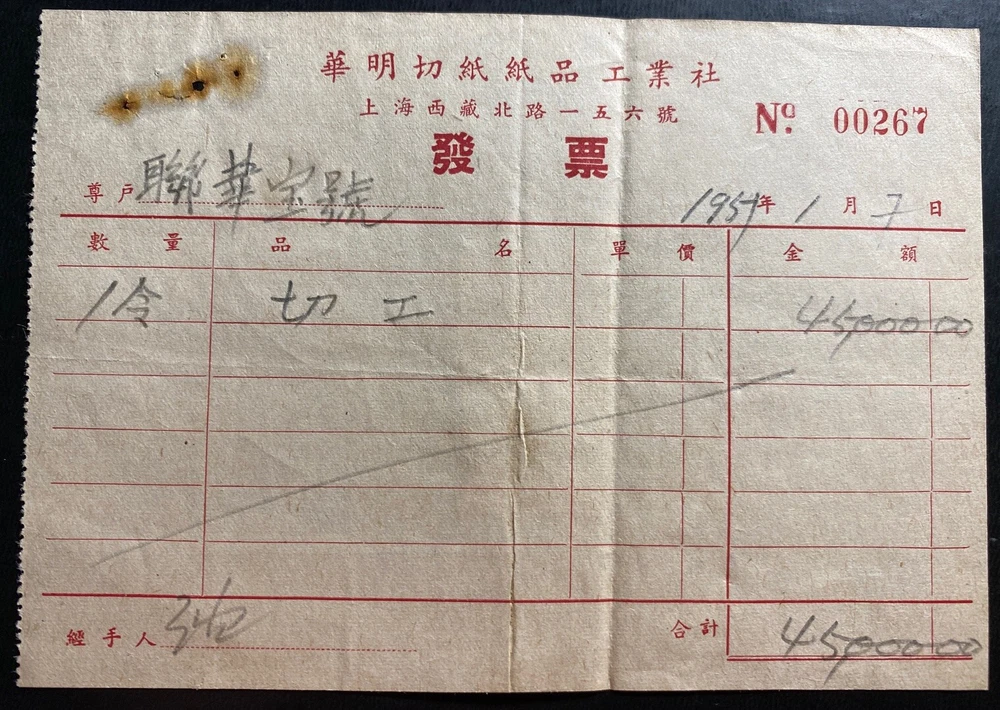 華明切紙紙品工業社
上海西藏北路一五六號
Nº. 00267
發票
尊戶 聯華宝號
1954年1月7日
數量 品名 單價 金額
1令 切工 45,000 00
經手人
合計 45,000 00